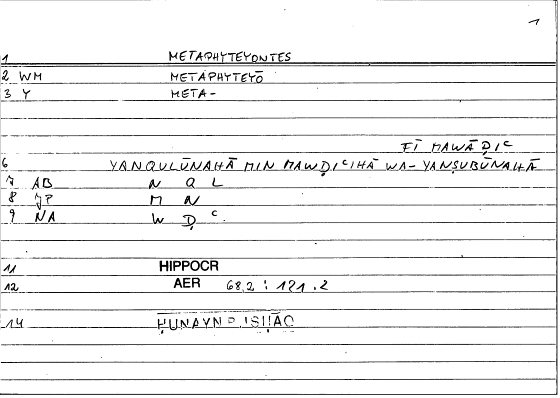 1
1 METAPHYTEYONTES
2 WM METAPHYTEYŌ
3 Y META-
FĪ MAWĀḌIC
6 YANQULŪNAHĀ MIN MAWḌICIHĀ WA-YANṢUBŪNAHĀ
7 AB N Q L
8 JP M N
9 NA W Ḍ C.
11 HIPPOCR
12 AER 68,2 : 121.2
14 ḤUNAYN B ISḤĀQ